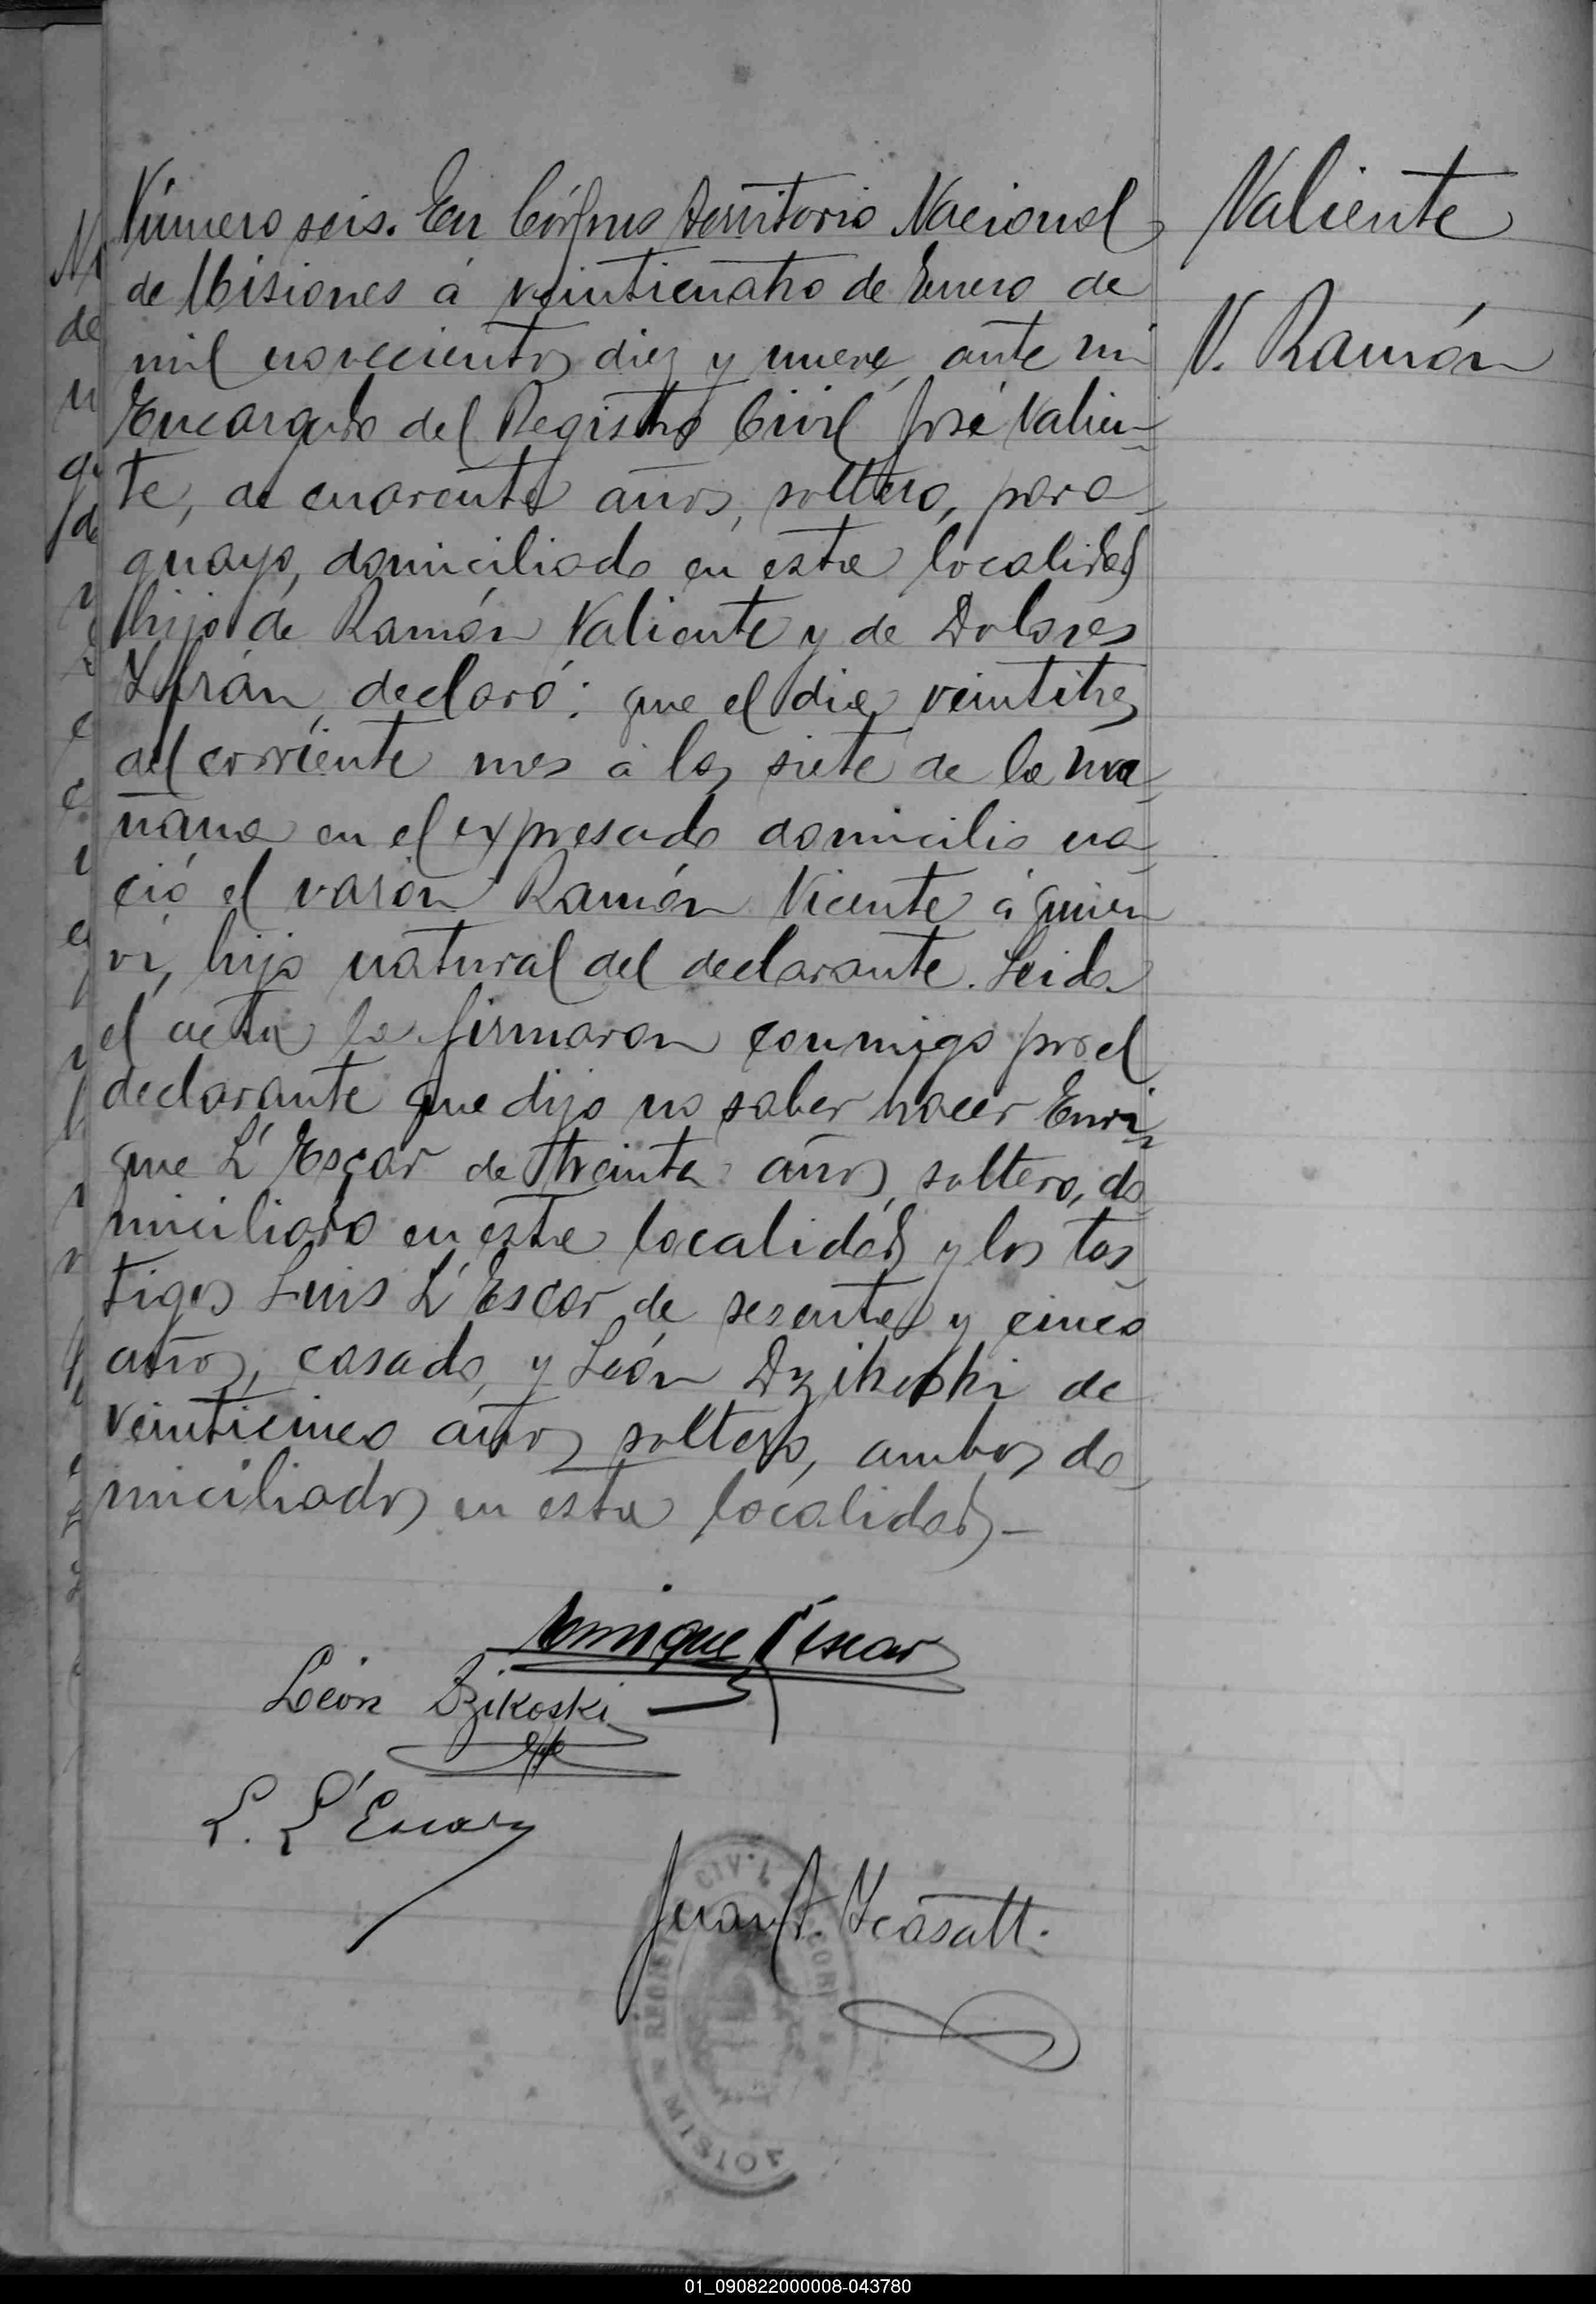 Número seis. En Córpus territorio Nacional
de Misiones á veinticuatro de Enero de
mil novecientos diez y nueve, ante mi
Encargado del Registro Civil José Valien-
te, de cuarenta años, soltero, para-
guayo, domiciliado en esta localidad
hijo de Ramón Valiente y de Dolores
declaró: que el dia veintitres
del corriente mes á las siete de la ma-
ñana en el expresado domicilio na-
ció el varón Ramón Vicente á quien
vi, hijo natural del declarante. Leida
el acta la firmaron conmigo por el
declarante que dijo no saber hacer Enri-
que L'Escar de treinta años, soltero, do-
miciliado en esta localidad y los tes-
tigos Luis L'Escar de sesenta y cinco
años, casado, y León Dzikoski de
veinticinco años soltero, ambos do-
miciliados en esta localidad-
Valiente
V. Ramón
Enrique L'Escar
León Dzikoski
L. L'Escar
Juan
REGIST CIVIL
01_090822000008-043780